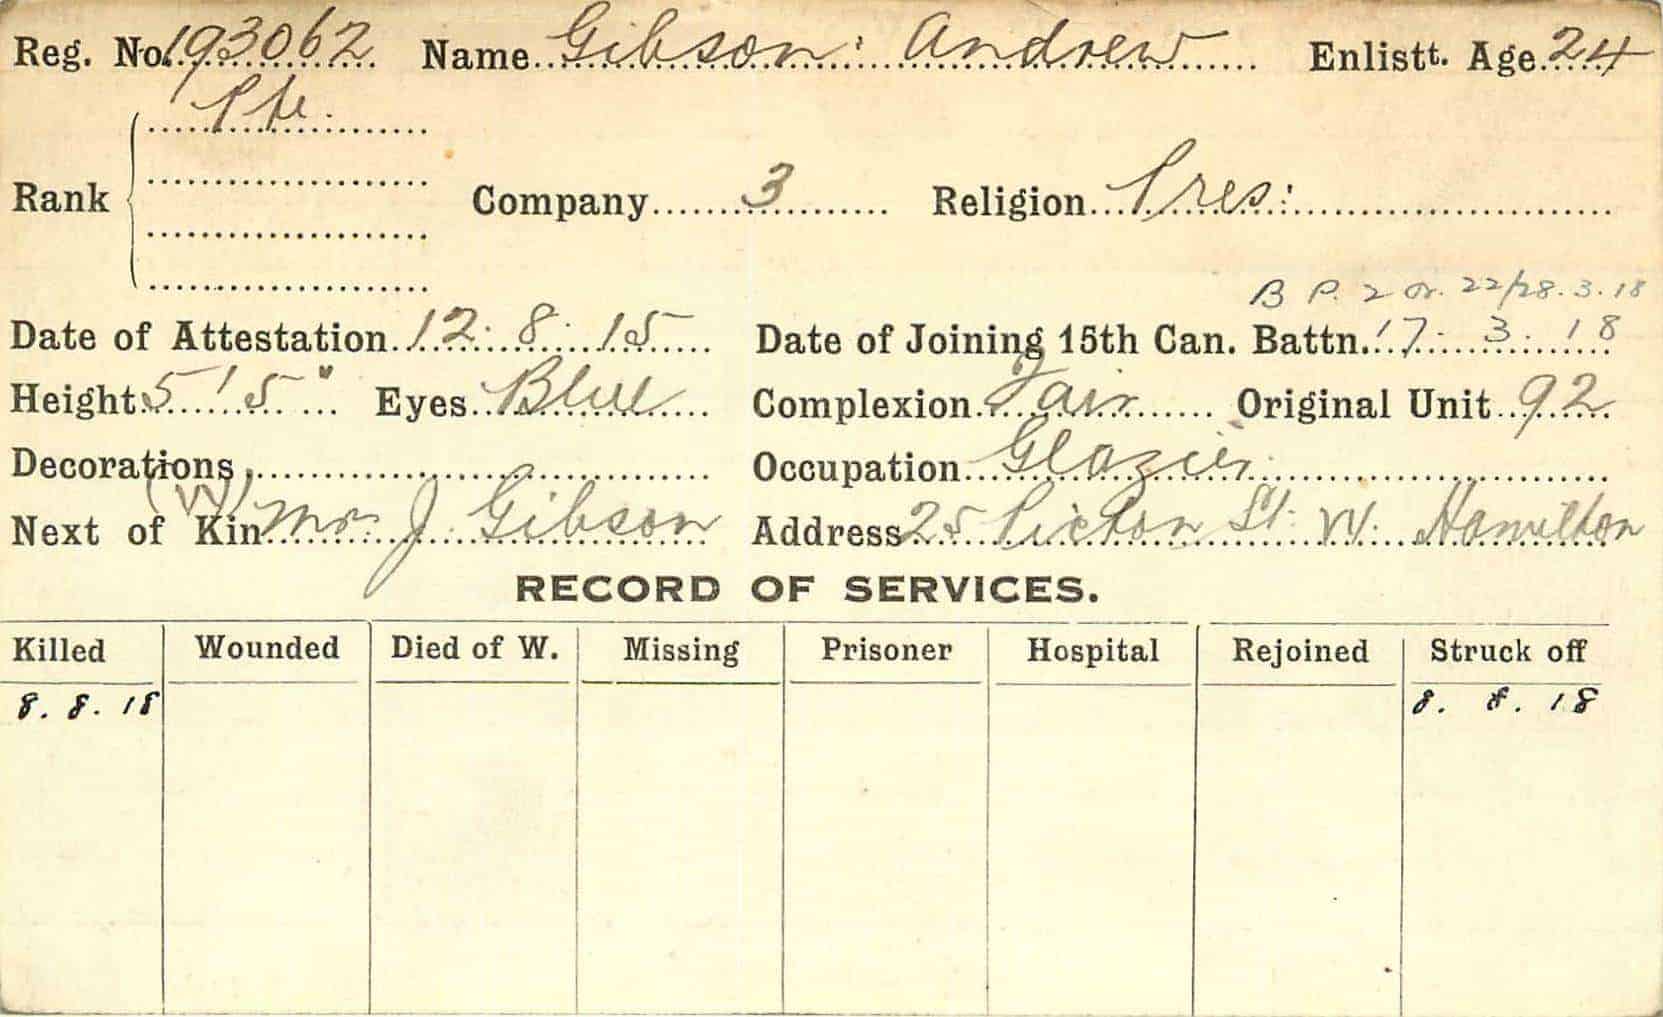 Reg. No. 193062 Name Gibson: Andrew Enlistt. Age 24
Pte.
Rank Company 3 Religion Pres:
B P. 2 Or. 22/28.3.18
Date of Attestation 12.8.15 Date of Joining 15th Can. Battn. 17.3.18
Height 5'5" Eyes Blue Complexion Fair Original Unit 92
Decorations Occupation Glazier
(W)
Next of Kin J. Gibson Address 25 Picton St. W. Hamilton
RECORD OF SERVICES.
Killed Wounded Died of W. Missing Prisoner Hospital Rejoined Struck off
8.8.18 8.8.18